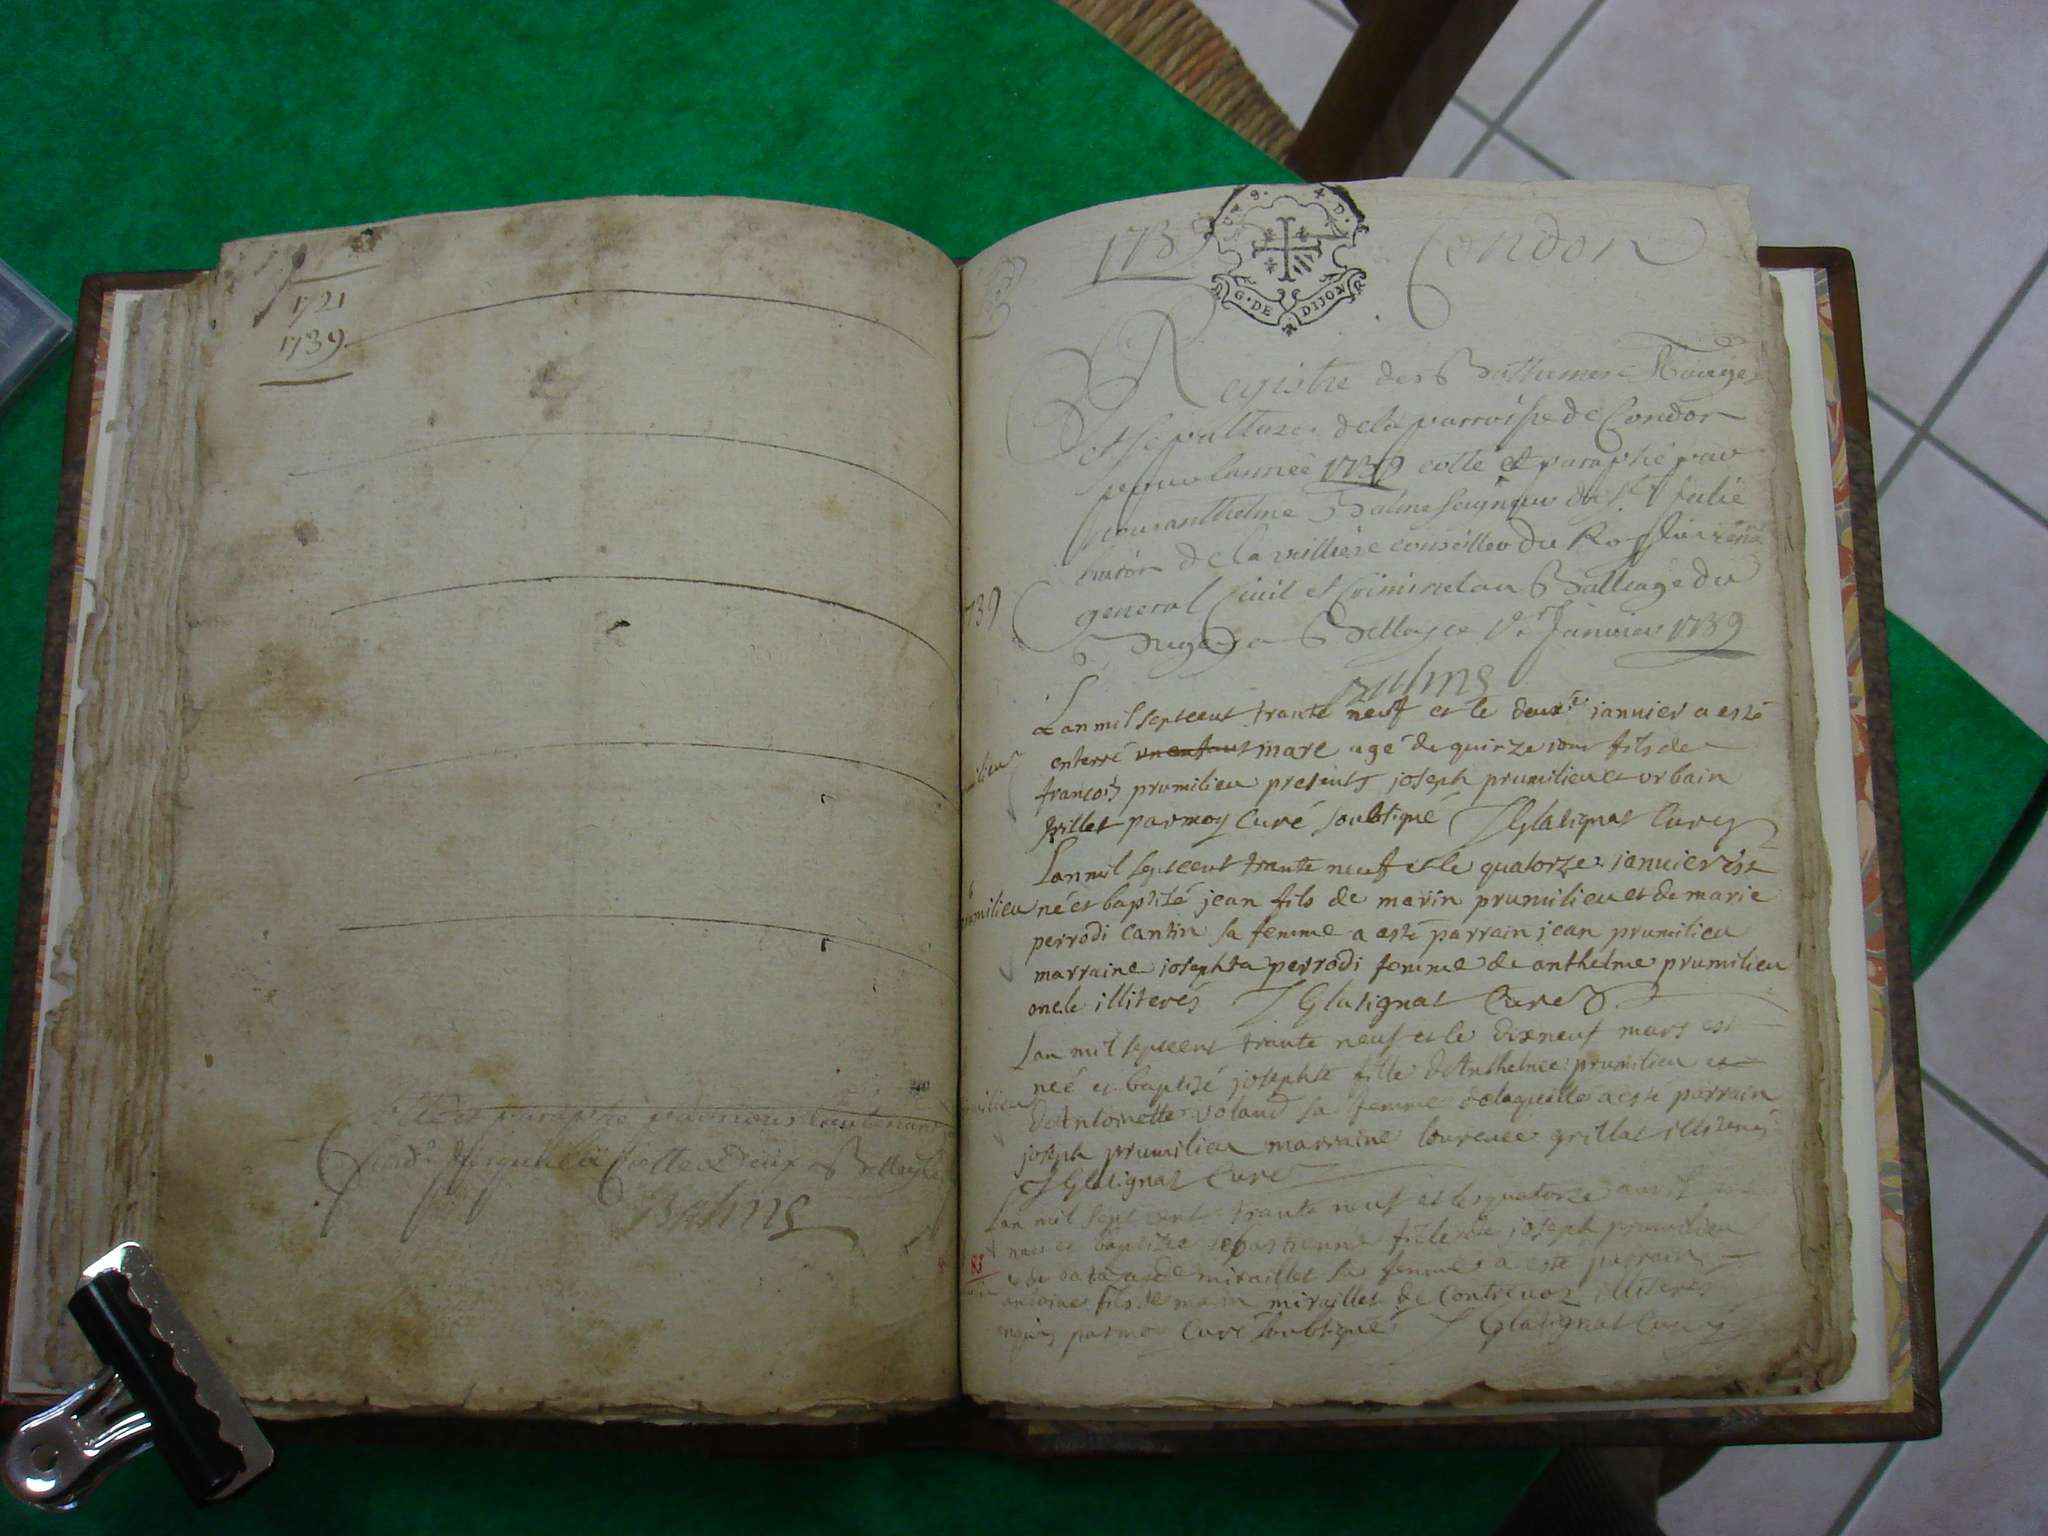 1721
1739
et paraphé par nous Lieutenant
Belley le
Balme
1739
Condon
G. DE DIJON
Registre des Bathemes Mariages
et sepultures de la parroisse de Condon
pour lannée 1739 cotté et paraphé par
nous anthelme Balme seigneur de st Julie
baron de la veilliere conseiller du Roy
general Civil et Criminel au Balliage du
Bugey a Belley ce 1er Janvier 1739
Balme
1739
Lan mil septcent trante neuf et le deuxe ianuier a esté
enterré un enfant marc agé de quinze iour fils de
francois prumilieu presents joseph prumilieu et urbain
grillet par moy Curé soubsigné J Glatignat Curé
Lan mil septcent trante neuf et le quatorze ianuier est
prumilieu
né et baptizé jean fils de marin prumilieu et de marie
perrodi cantin sa femme a esté parrain jean prumilieu
marraine iosephta perrodi femme de anthelme prumilieu
oncle illiterés J Glatignat Curé
Lan mil septcent trante neuf et le dixneuf mars est
neé et baptizé josephte fille dAnthelme prumilieu et
dAntoinette Voland sa femme delaquelle a esté parrain
joseph prumilieu marraine lourence grillat illiterés
J Glatignat Curé
Lan mil sept cent trante neuf et le quatorze avril
83
née et baptizée sebastienne fille de joseph prumilieu
et de miraillet sa femme a esté parrain
antoine fils de marin miraillet de Contrevoz illiteres
par moy Curé soubsigné J Glatignat Curé